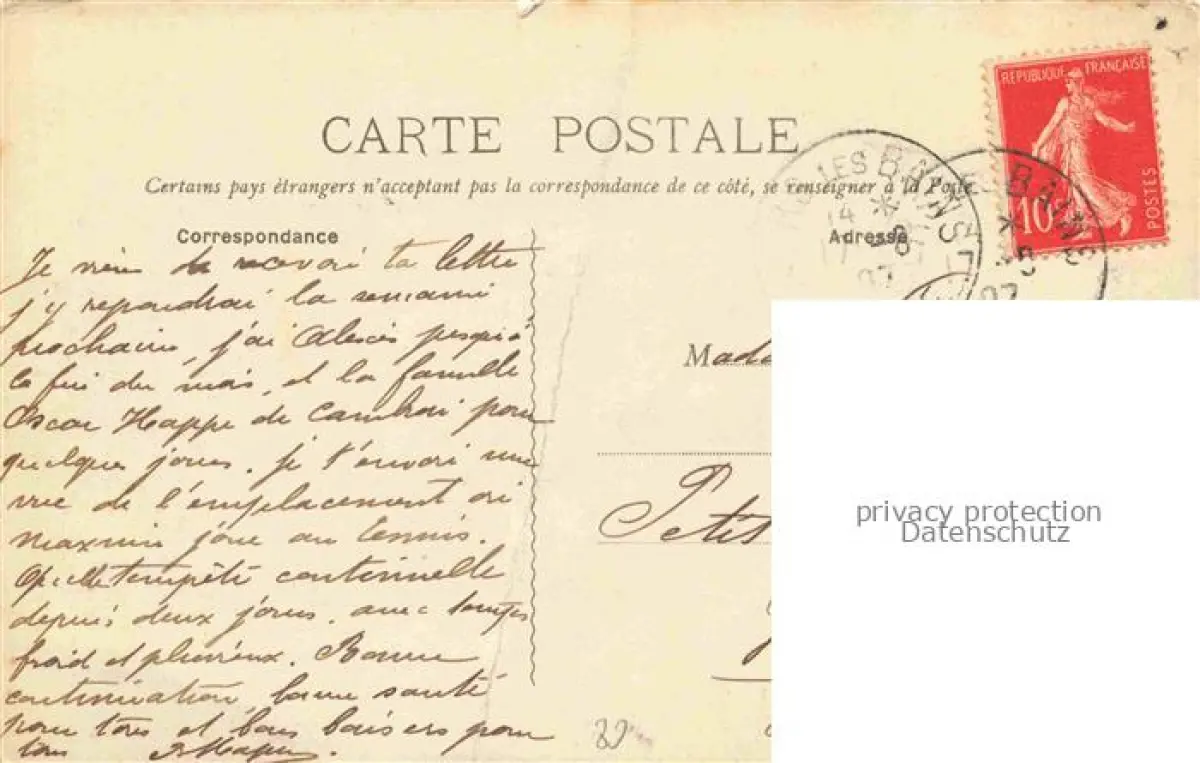 CARTE POSTALE
Certains pays étrangers n'acceptent pas la correspondance de ce côté, se renseigner à la Poste
Correspondance
Adresse
RÉPUBLIQUE FRANÇAISE
10
POSTES
LES BAINS
14
LES BAINS
07
Je viens de recevoir ta lettre
j'y repondrai la semaine
prochaine, j'ai Alexis jusqu'à
la fin du mois, et la famille
Oscar Happe de Cambrai pour
quelques jours. je t'envoie une
vue de l'emplacement où
Maxmin joue au tennis.
Quelle tempête continuelle
depuis deux jours, avec temps
froid et pluvieux. Bonne
continuation bonne santé
pour tous et bons baisers pour
tous
Mada
Petits
privacy protection
Datenschutz